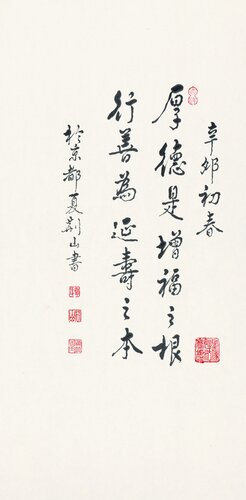 辛卯初春
厚德是增福之根
行善為延壽之本
於京都夏荆山書